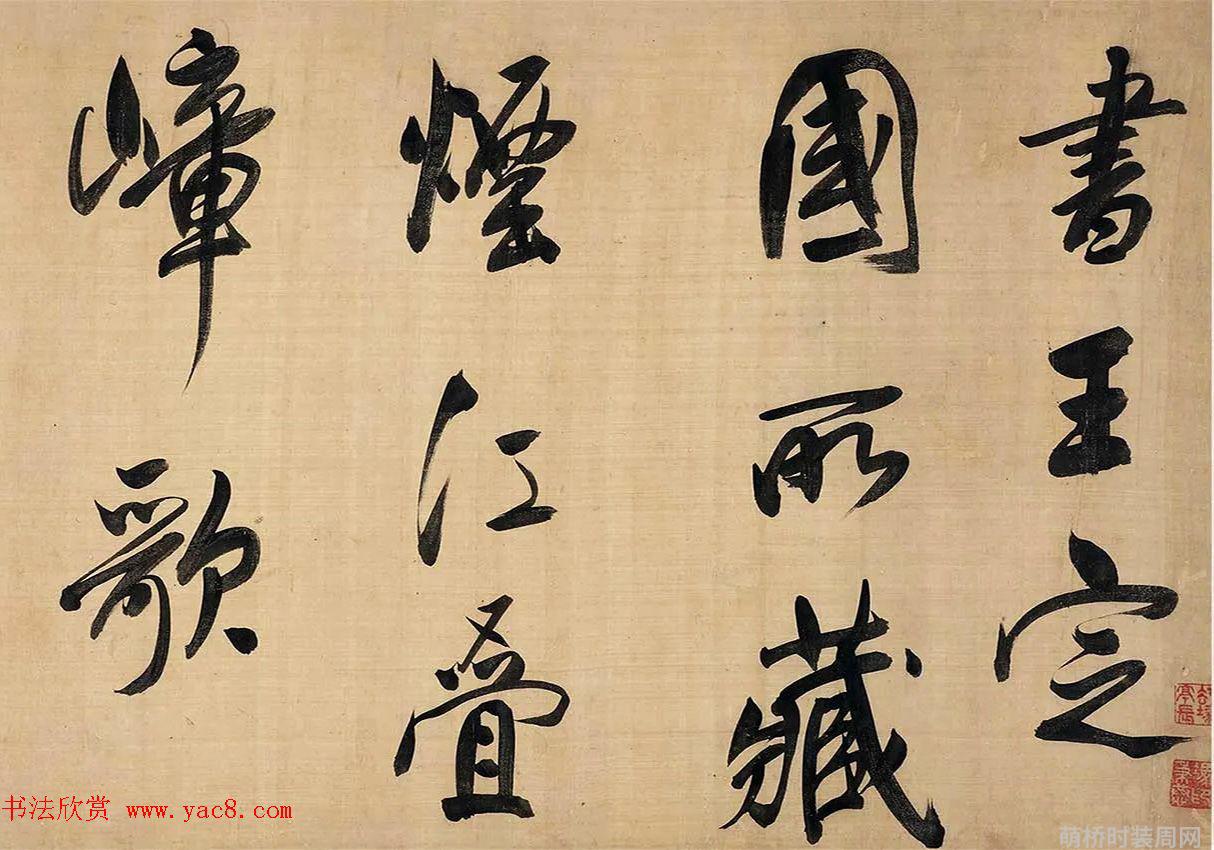 書王定
國所藏
煙江疊
嶂歌
书法欣赏 www.yac8.com
萌桥时装周网